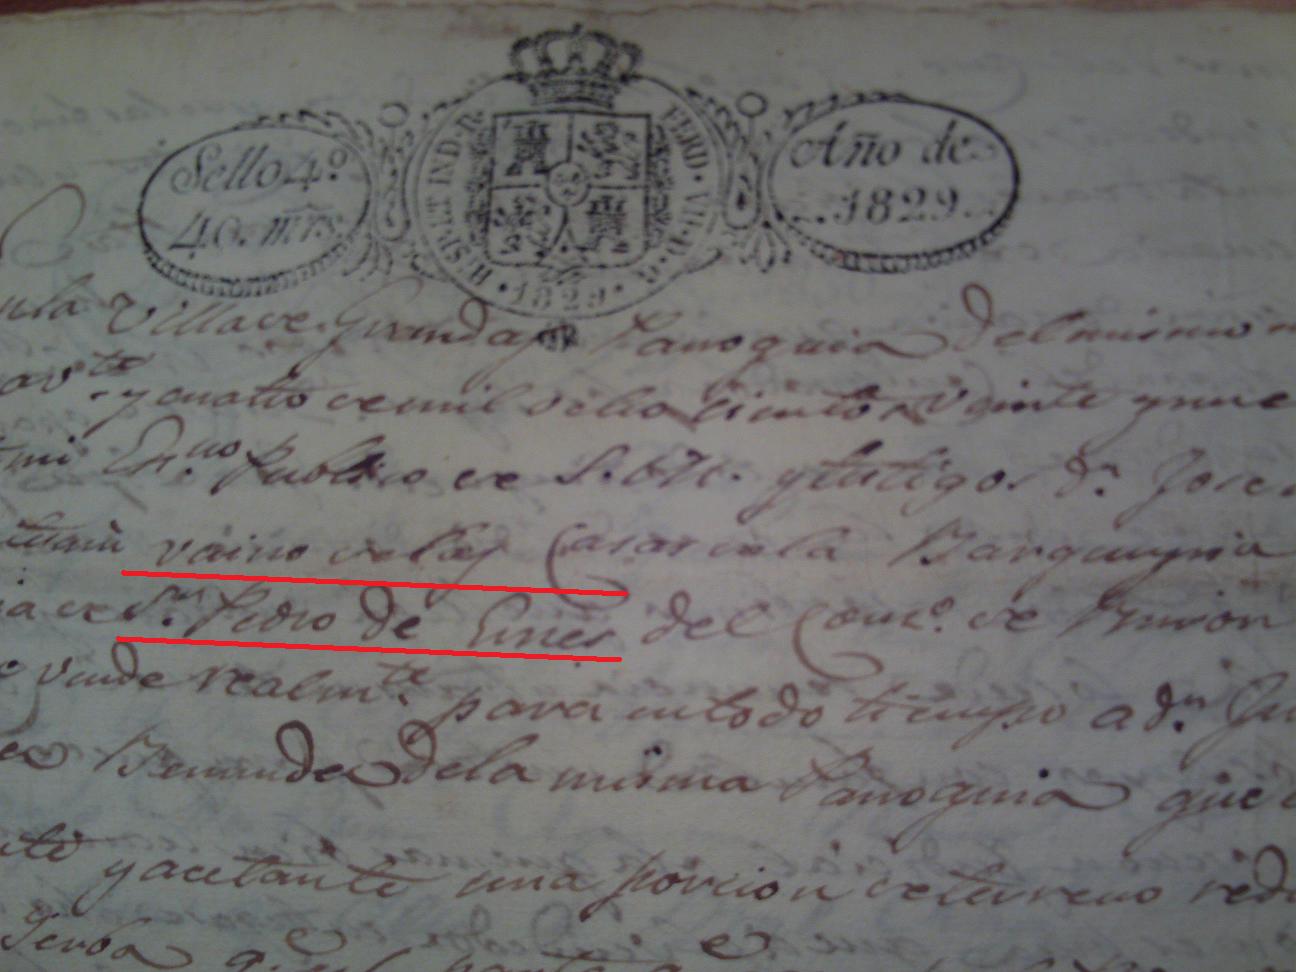 Sello 4.º
40. mrs.
HISP. ET IND. R.
FERD. VII. D. G.
1829
Año de
1829.
Villa de Grandas Parroquia del mismo
y cuatro de mil ochocientos Veinte y nue
mi Es.no Publico de S. M. y testigos d.n Jose
vecino de las Casas de la Barqueyria
ia de S.n Pedro de Ernes del Conc.o de Burón
e vende realm.te para en todo tiempo a d.n Ju
de la misma Parroquia que
y acetante una porcion de terreno redu